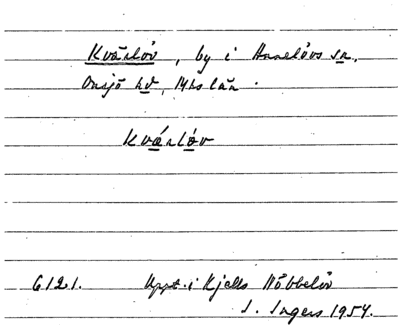 Kvärlöv, by i Annelövs sn.
Onsjö hd, Mhs län.
Kvárlöv
6121. Uppt. i Kjells Nöbbelöv
I. Ingers 1954.